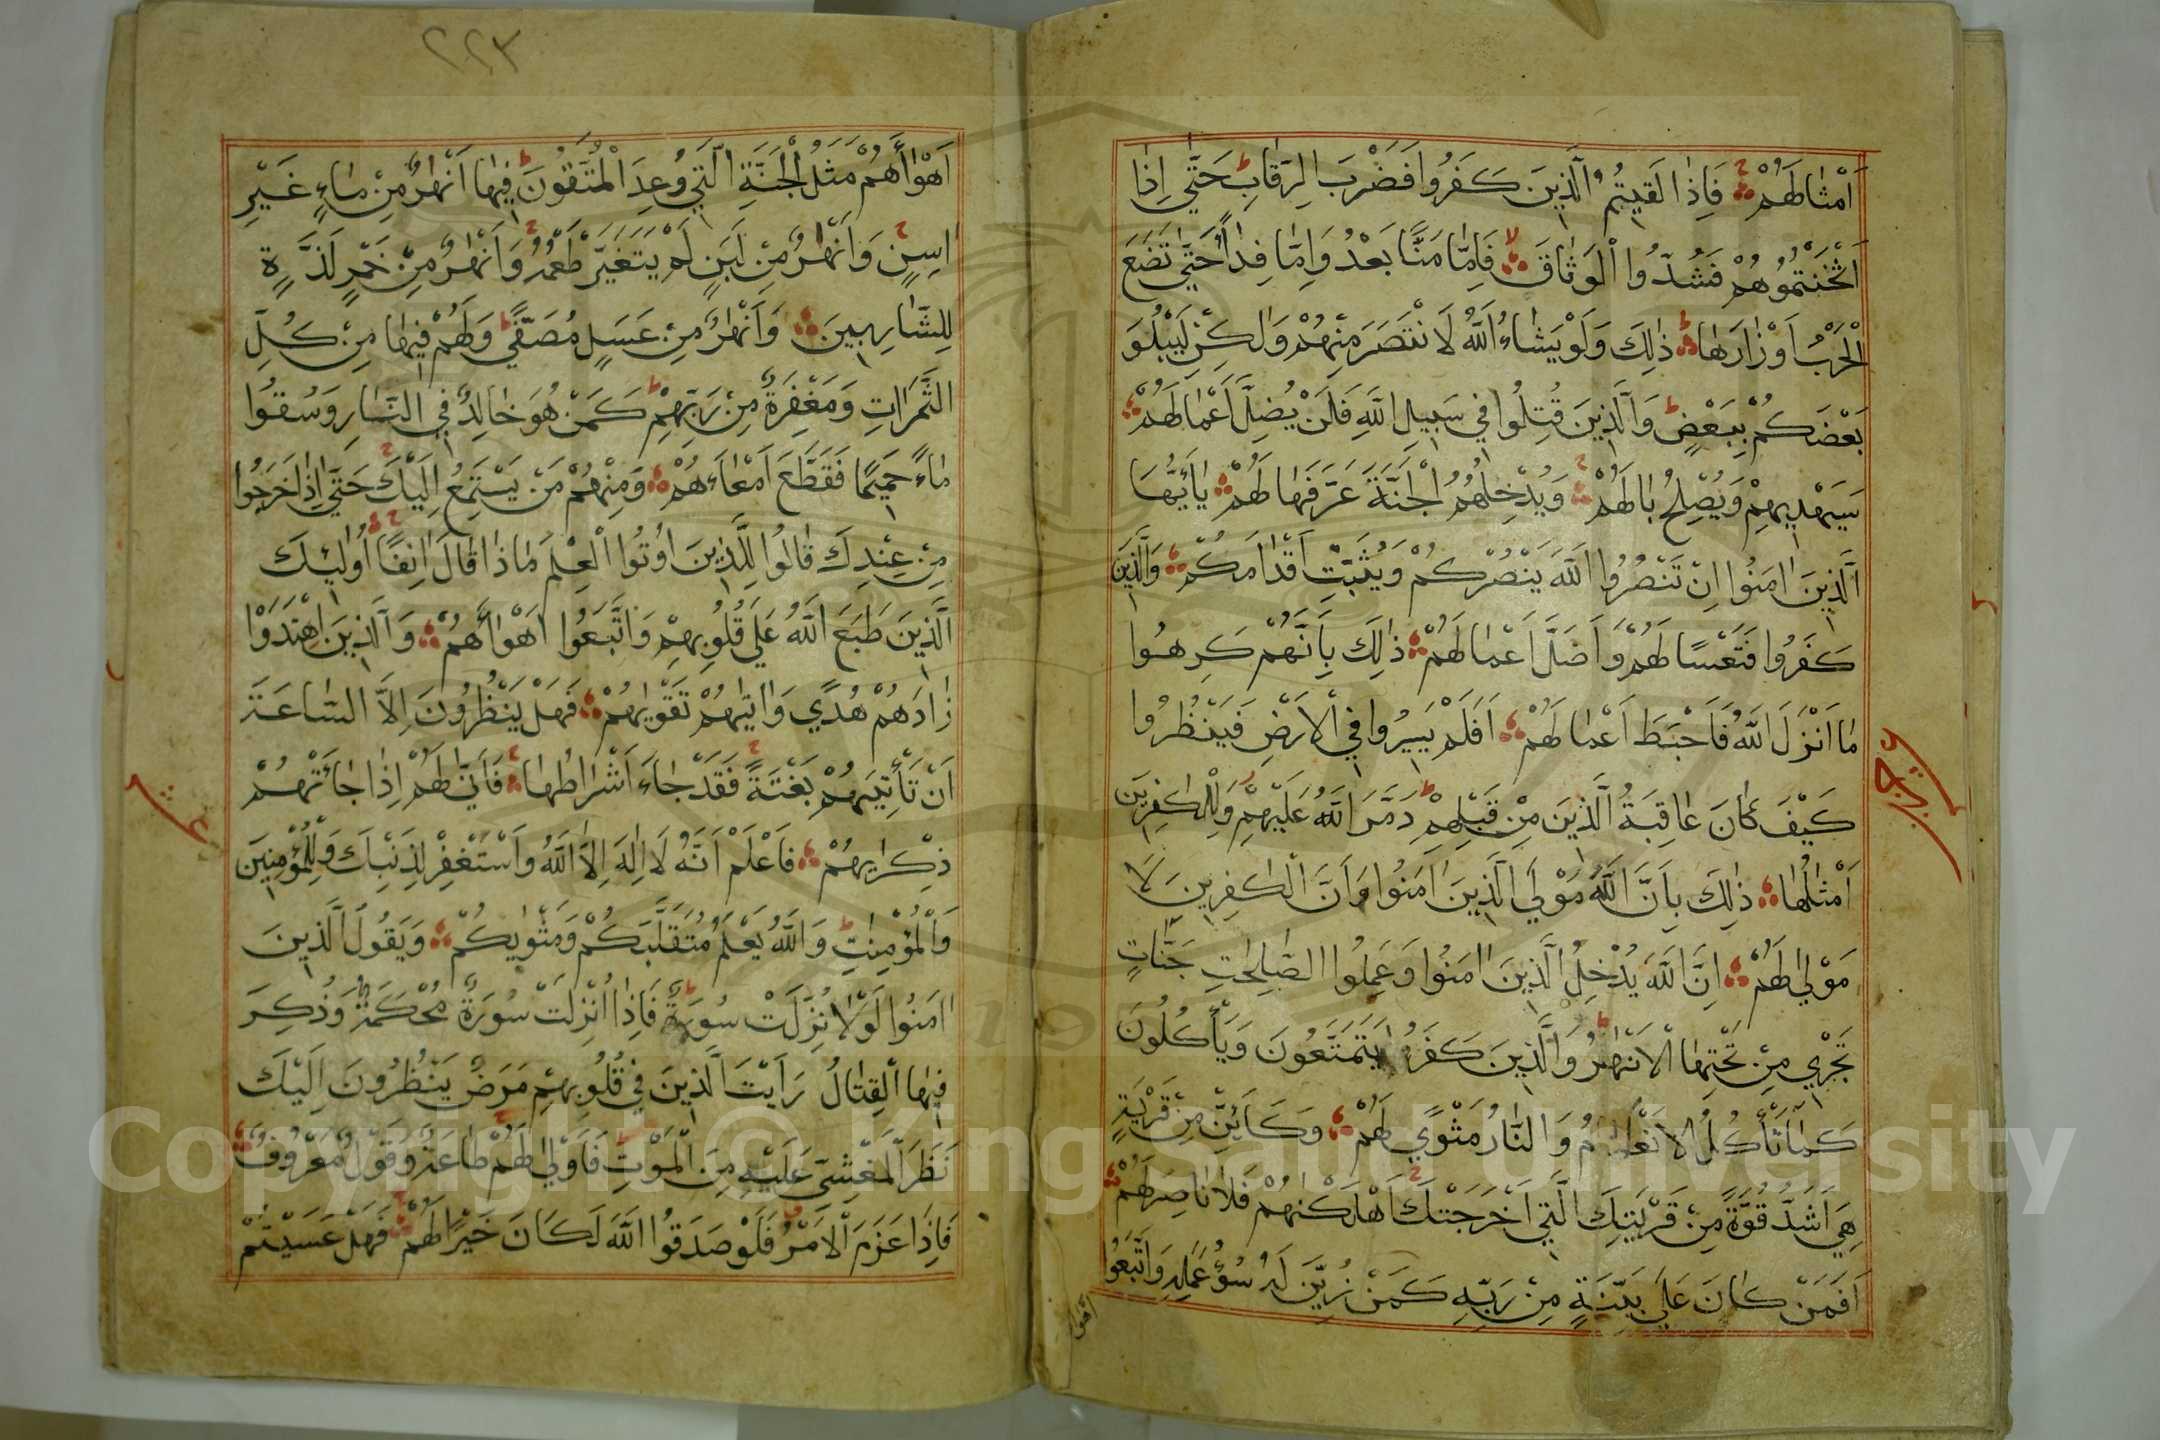 اَمْثَالَهُمْ فَاِذَا لَقِيتُمُ الَّذِينَ كَفَرُوا فَضَرْبَ الرِّقَابِ حَتَّى اِذَا
اَثْخَنْتُمُوهُمْ فَشُدُّوا الْوَثَاقَ فَاِمَّا مَنًّا بَعْدُ وَاِمَّا فِدَاءً حَتَّى تَضَعَ
الْحَرْبُ اَوْزَارَهَا ذٰلِكَ وَلَوْ يَشَاءُ اللّٰهُ لَانْتَصَرَ مِنْهُمْ وَلٰكِنْ لِيَبْلُوَ
بَعْضَكُمْ بِبَعْضٍ وَالَّذِينَ قُتِلُوا فِي سَبِيلِ اللّٰهِ فَلَنْ يُضِلَّ اَعْمَالَهُمْ
سَيَهْدِيهِمْ وَيُصْلِحُ بَالَهُمْ وَيُدْخِلُهُمُ الْجَنَّةَ عَرَّفَهَا لَهُمْ يَاأَيُّهَا
الَّذِينَ اٰمَنُوا اِنْ تَنْصُرُوا اللّٰهَ يَنْصُرْكُمْ وَيُثَبِّتْ اَقْدَامَكُمْ وَالَّذِينَ
كَفَرُوا فَتَعْسًا لَهُمْ وَاَضَلَّ اَعْمَالَهُمْ ذٰلِكَ بِاَنَّهُمْ كَرِهُوا
مَا اَنْزَلَ اللّٰهُ فَاَحْبَطَ اَعْمَالَهُمْ اَفَلَمْ يَسِيرُوا فِي الْاَرْضِ فَيَنْظُرُوا
كَيْفَ كَانَ عَاقِبَةُ الَّذِينَ مِنْ قَبْلِهِمْ دَمَّرَ اللّٰهُ عَلَيْهِمْ وَلِلْكٰفِرِينَ
اَمْثَالُهَا ذٰلِكَ بِاَنَّ اللّٰهَ مَوْلَى الَّذِينَ اٰمَنُوا وَاَنَّ الْكٰفِرِينَ لَا
مَوْلٰى لَهُمْ اِنَّ اللّٰهَ يُدْخِلُ الَّذِينَ اٰمَنُوا وَعَمِلُوا الصّٰلِحٰتِ جَنَّاتٍ
تَجْرِي مِنْ تَحْتِهَا الْاَنْهٰرُ وَالَّذِينَ كَفَرُوا يَتَمَتَّعُونَ وَيَأْكُلُونَ
كَمَا تَأْكُلُ الْاَنْعَامُ وَالنَّارُ مَثْوًى لَهُمْ وَكَاَيِّنْ مِنْ قَرْيَةٍ
هِيَ اَشَدُّ قُوَّةً مِنْ قَرْيَتِكَ الَّتِي اَخْرَجَتْكَ اَهْلَكْنٰهُمْ فَلَا نَاصِرَ لَهُمْ
اَفَمَنْ كَانَ عَلٰى بَيِّنَةٍ مِنْ رَبِّهِ كَمَنْ زُيِّنَ لَهُ سُوءُ عَمَلِهِ وَاتَّبَعُوا
٢٢٣
اَهْوَاءَهُمْ مَثَلُ الْجَنَّةِ الَّتِي وُعِدَ الْمُتَّقُونَ فِيهَا اَنْهٰرٌ مِنْ مَاءٍ غَيْرِ
اٰسِنٍ وَاَنْهٰرٌ مِنْ لَبَنٍ لَمْ يَتَغَيَّرْ طَعْمُهُ وَاَنْهٰرٌ مِنْ خَمْرٍ لَذَّةٍ
لِلشَّارِبِينَ وَاَنْهٰرٌ مِنْ عَسَلٍ مُصَفًّى وَلَهُمْ فِيهَا مِنْ كُلِّ
الثَّمَرَاتِ وَمَغْفِرَةٌ مِنْ رَبِّهِمْ كَمَنْ هُوَ خَالِدٌ فِي النَّارِ وَسُقُوا
مَاءً حَمِيمًا فَقَطَّعَ اَمْعَاءَهُمْ وَمِنْهُمْ مَنْ يَسْتَمِعُ اِلَيْكَ حَتَّى اِذَا خَرَجُوا
مِنْ عِنْدِكَ قَالُوا لِلَّذِينَ اُوتُوا الْعِلْمَ مَاذَا قَالَ اٰنِفًا اُولٰئِكَ
الَّذِينَ طَبَعَ اللّٰهُ عَلٰى قُلُوبِهِمْ وَاتَّبَعُوا اَهْوَاءَهُمْ وَالَّذِينَ اهْتَدَوْا
زَادَهُمْ هُدًى وَاٰتٰيهُمْ تَقْوٰيهُمْ فَهَلْ يَنْظُرُونَ اِلَّا السَّاعَةَ
اَنْ تَأْتِيَهُمْ بَغْتَةً فَقَدْ جَاءَ اَشْرَاطُهَا فَاَنّٰى لَهُمْ اِذَا جَاءَتْهُمْ
ذِكْرٰيهُمْ فَاعْلَمْ اَنَّهُ لَا اِلٰهَ اِلَّا اللّٰهُ وَاسْتَغْفِرْ لِذَنْبِكَ وَلِلْمُؤْمِنِينَ
وَالْمُؤْمِنٰتِ وَاللّٰهُ يَعْلَمُ مُتَقَلَّبَكُمْ وَمَثْوٰيكُمْ وَيَقُولُ الَّذِينَ
اٰمَنُوا لَوْلَا نُزِّلَتْ سُورَةٌ فَاِذَا اُنْزِلَتْ سُورَةٌ مُحْكَمَةٌ وَذُكِرَ
فِيهَا الْقِتَالُ رَاَيْتَ الَّذِينَ فِي قُلُوبِهِمْ مَرَضٌ يَنْظُرُونَ اِلَيْكَ
نَظَرَ الْمَغْشِيِّ عَلَيْهِ مِنَ الْمَوْتِ فَاَوْلٰى لَهُمْ طَاعَةٌ وَقَوْلٌ مَعْرُوفٌ
فَاِذَا عَزَمَ الْاَمْرُ فَلَوْ صَدَقُوا اللّٰهَ لَكَانَ خَيْرًا لَهُمْ فَهَلْ عَسَيْتُمْ
Copyright © King Saud University